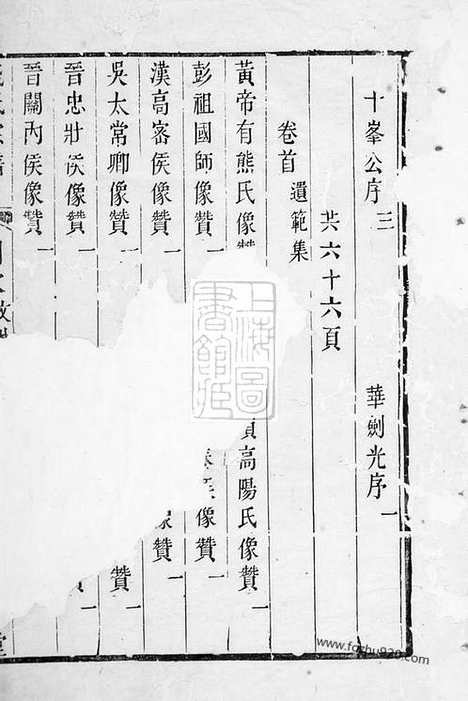 十峯公序 三 華劍光序 一
共六十六頁
卷首 遺範集
黃帝有熊氏像贊 頊高陽氏像贊 一
彭祖國師像贊 一 侯像贊 一
漢高密侯像贊 一 像贊 一
吳太常卿像贊 一 贊 一
晉忠壯侯像贊 一 贊 一
晉關內侯像贊 一
上海圖書館藏
www.fozhu920.com